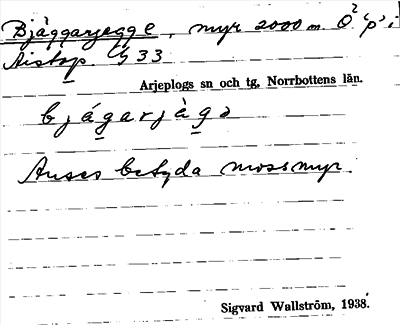 Bjäggarjegge, myr 2000 m. Ö²"p" i
Aistop G 33
Arjeplogs sn och tg, Norrbottens län.
bjágarjàgə
Anses betyda mossmyr.
Sigvard Wallström, 1938.